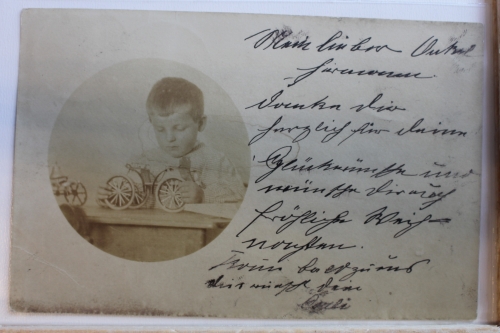 Mein lieber Onkel
Hermann.
Danke dir
herzlich für deine
Glückwünsche und
wünsche dir auch
fröhliche Weih-
nachten.
Komm bald zu uns
dies wünscht dein